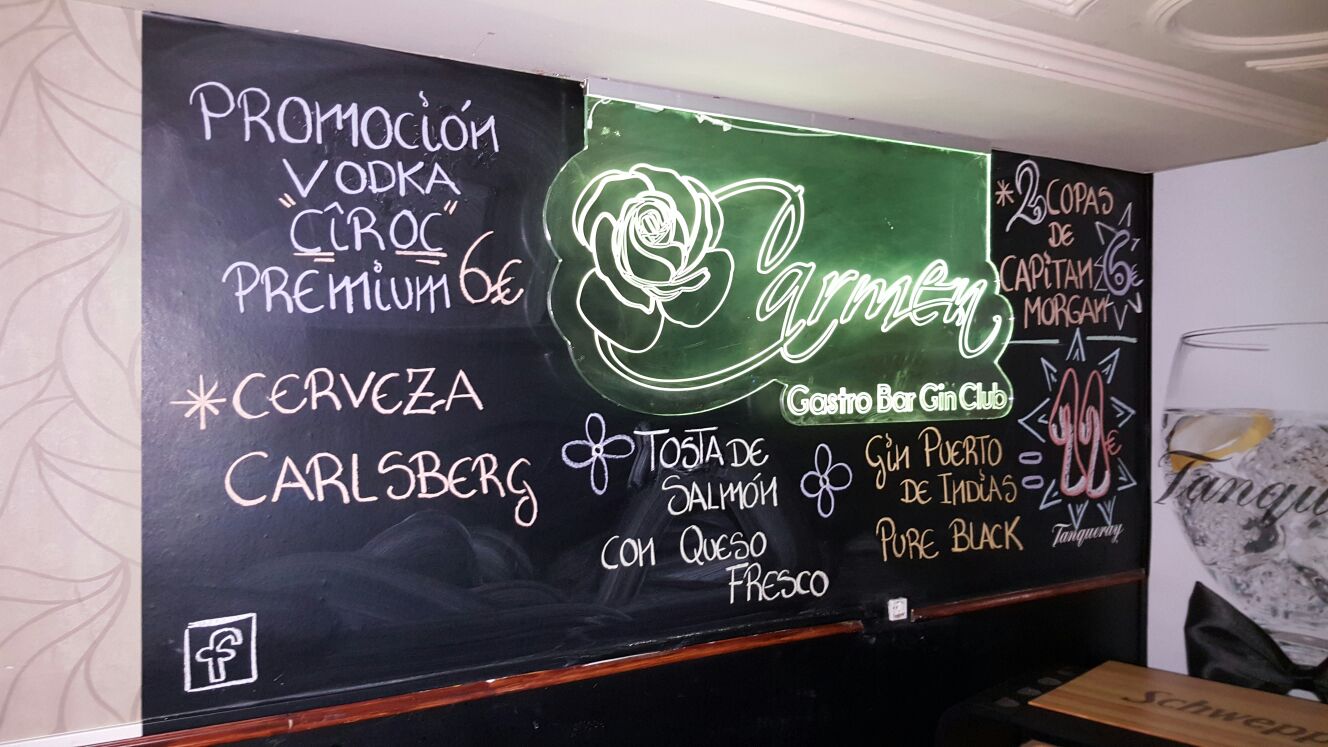 PROMOCIÓN
VODKA
"CÎROC"
PREMIUM 6€
*CERVEZA
CARLSBERG
f
Carmen
Gastro Bar Gin Club
TOSTA DE
SALMÓN
CON QUESO
FRESCO
GIN PUERTO
DE INDIAS
PURE BLACK
*2 COPAS
DE
CAPITAN 6€
MORGAN
11€
Tanqueray
Tanqu
Schwepp